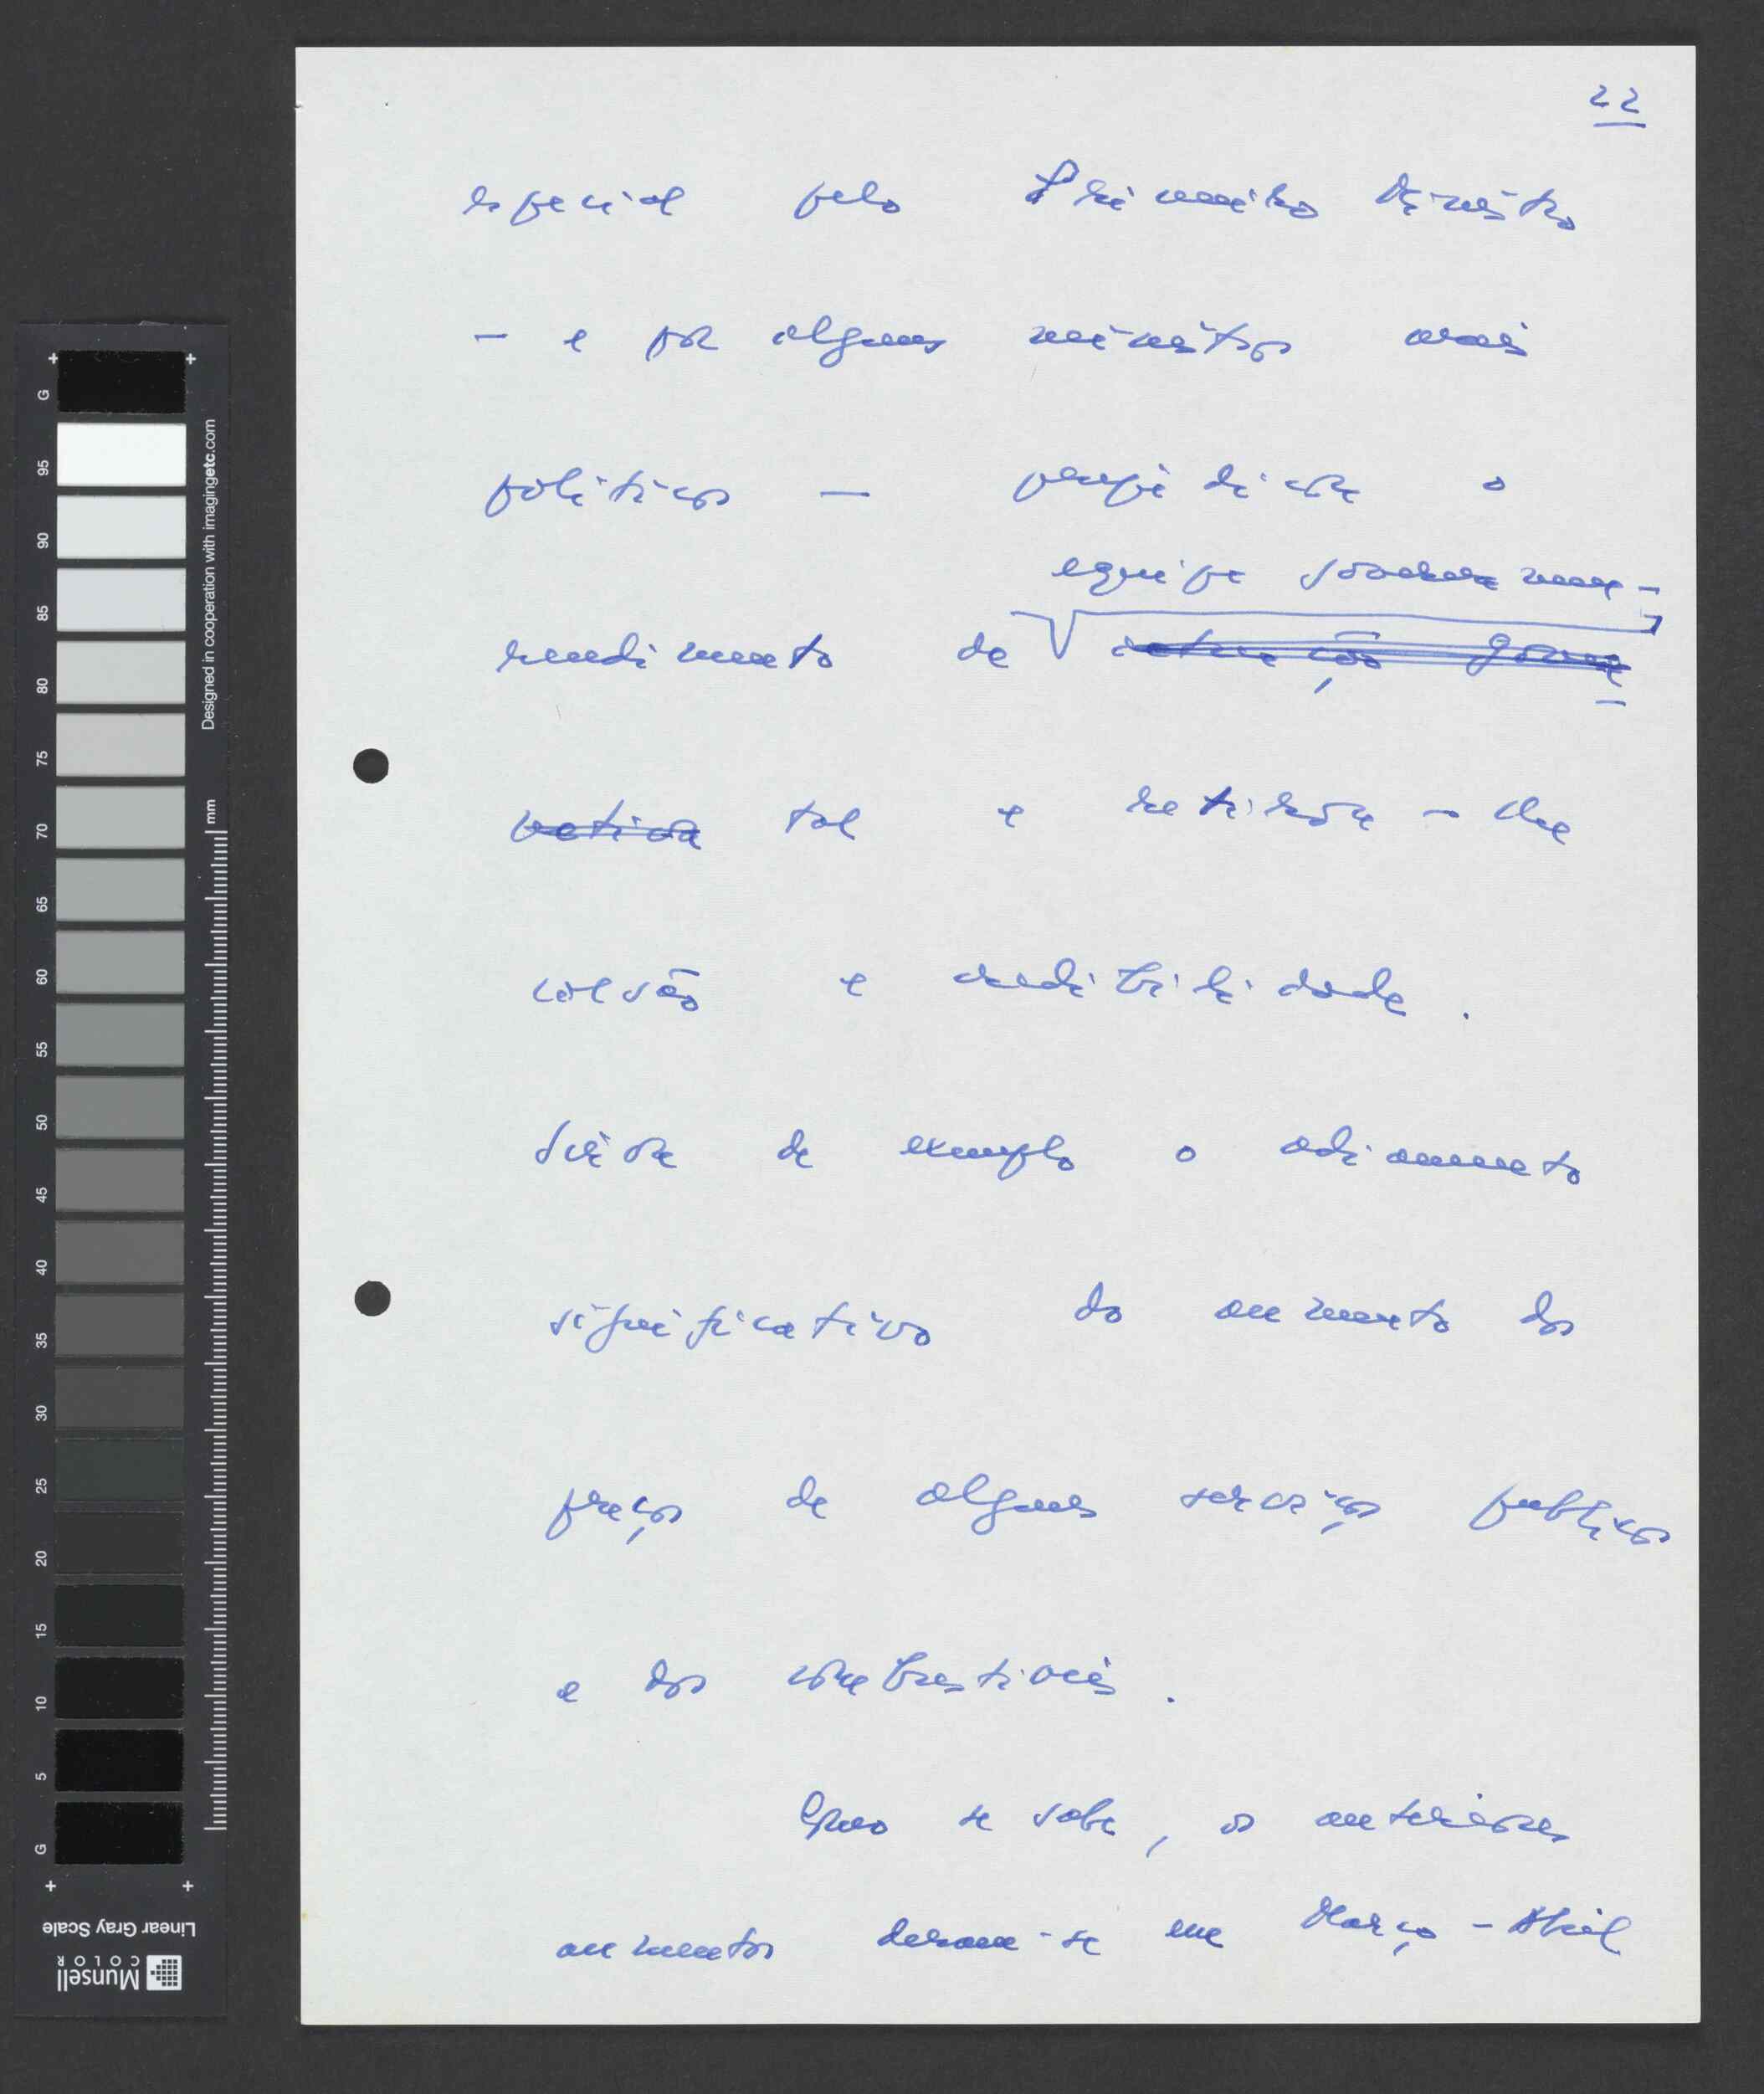 22
especial pelo Primeiro Ministro
- e por alguns ministros mais
políticos — prejudicou o
equipa governamen-
rendimento de actuação gover-
nativa tal e retirou-lhe
coesão e credibilidade.
Serve de exemplo o adiamento
significativo do aumento dos
preços de alguns serviços publicos
e dos combustíveis.
Como se sabe, os anteriores
aumentos deram-se em Março-Abril
G 95 90 85 80 75 70 65 60 55 50 45 40 35 30 25 20 15 10 5 G
Designed in cooperation with imagingetc.com
mm
Linear Gray Scale
Munsell
COLOR